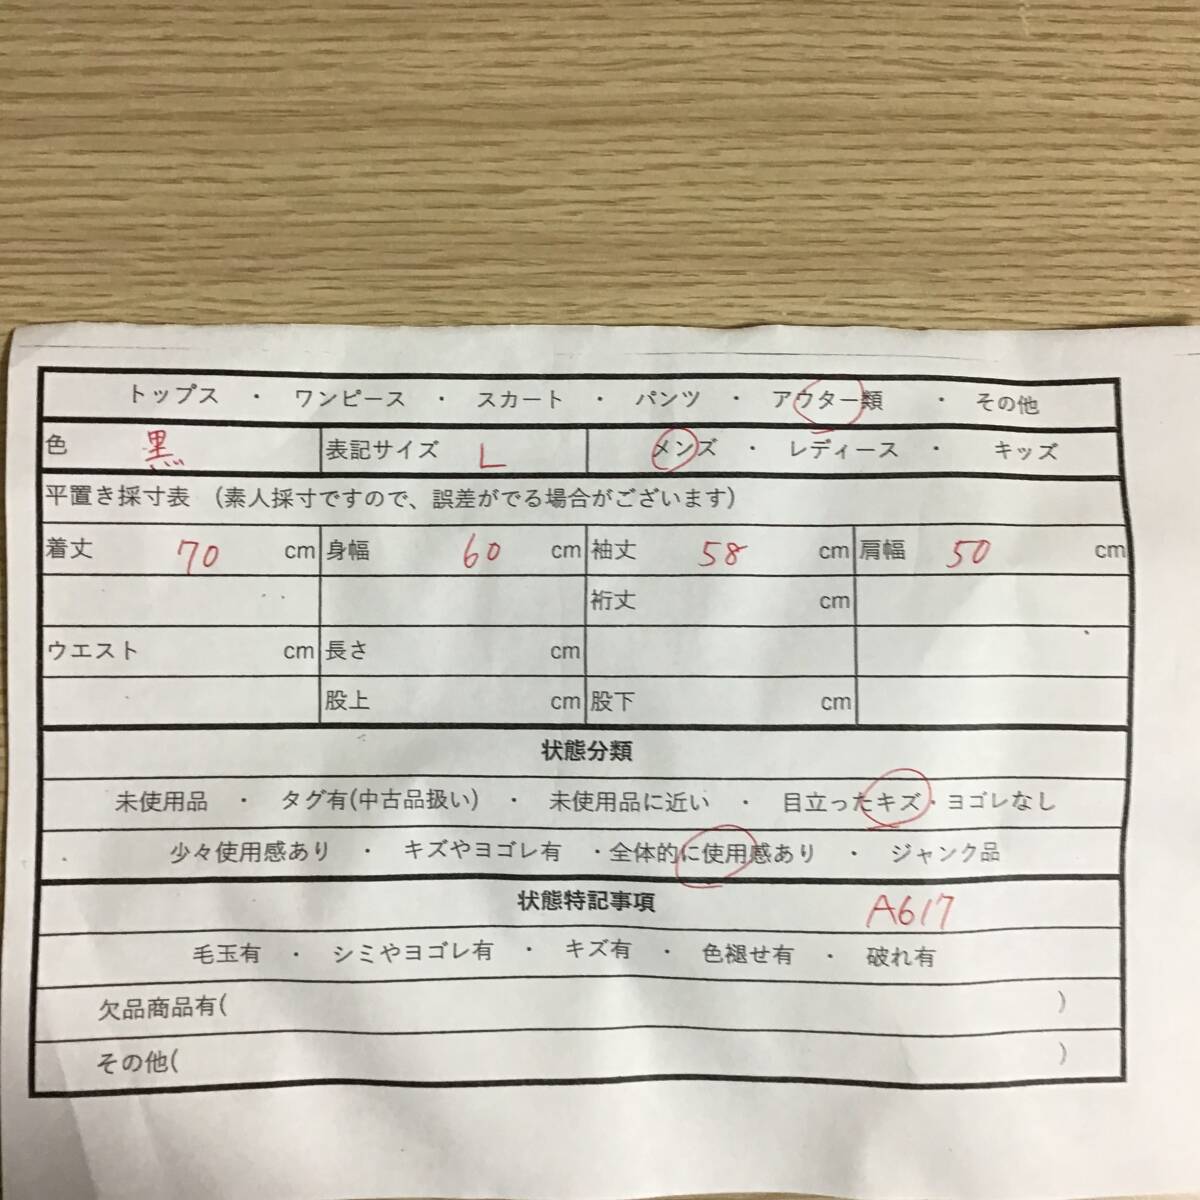 トップス ・ ワンピース ・ スカート ・ パンツ ・ アウター類 ・ その他
色 黒 表記サイズ L メンズ ・ レディース ・ キッズ
平置き採寸表 (素人採寸ですので、誤差がでる場合がございます)
着丈 70 cm 身幅 60 cm 袖丈 58 cm 肩幅 50 cm
裄丈 cm
ウエスト cm 長さ cm
股上 cm 股下 cm
状態分類
未使用品 ・ タグ有(中古品扱い) ・ 未使用品に近い ・ 目立ったキズ・ヨゴレなし
少々使用感あり ・ キズやヨゴレ有 ・全体的に使用感あり ・ ジャンク品
状態特記事項 A617
毛玉有 ・ シミやヨゴレ有 ・ キズ有 ・ 色褪せ有 ・ 破れ有
欠品商品有( )
その他( )